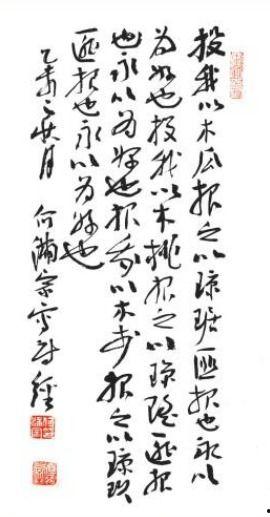 投我以木瓜报之以琼琚匪报也永以
为好也投我以木桃报之以琼瑶匪报
也永以为好也投我以木李报之以琼玖
匪报也永以为好也
乙未之月 何满宗写诗经